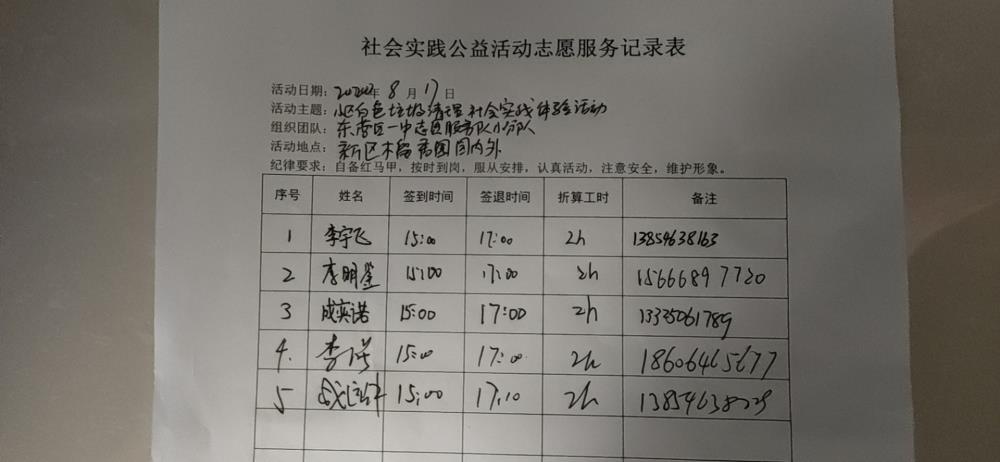 社会实践公益活动志愿服务记录表
活动日期：2022年8月17日
活动主题：小区白色垃圾清理社会实践体验活动
组织团队：东营区一中志愿服务队小分队
活动地点：新区木留 园园内外
纪律要求：自备红马甲，按时到岗，服从安排，认真活动，注意安全，维护形象。
序号 姓名 签到时间 签退时间 折算工时 备注
1 李宇飞 15:00 17:00 2h 13854638163
2 李明鉴 15:00 17:00 2h 15666897720
3 成奕诺 15:00 17:00 2h 13335061789
4. 李 15:00 17:00 2h 18606465677
5 15:00 17:10 2h